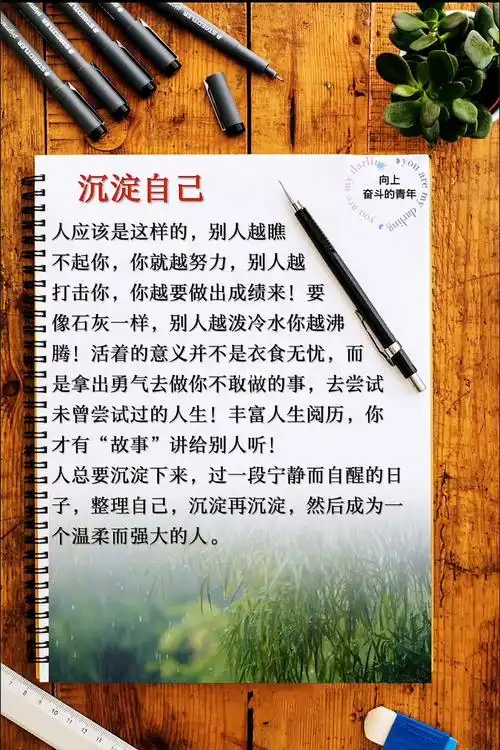 STAEDTLER
you are my darling
you are my darling
向上
奋斗的青年
沉淀自己
人应该是这样的，别人越瞧
不起你，你就越努力，别人越
打击你，你越要做出成绩来！要
像石灰一样，别人越泼冷水你越沸
腾！活着的意义并不是衣食无忧，而
是拿出勇气去做你不敢做的事，去尝试
未曾尝试过的人生！丰富人生阅历，你
才有“故事”讲给别人听！
人总要沉淀下来，过一段宁静而自醒的日
子，整理自己，沉淀再沉淀，然后成为一
个温柔而强大的人。
7 8 9 10 11 12 13 14